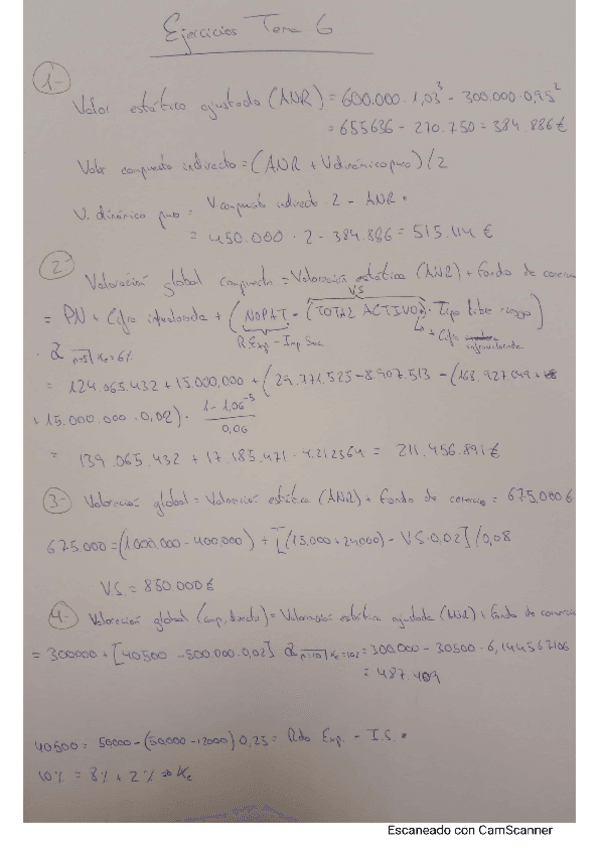 Ejercicios Tema 6
1-
Valor estático ajustado (ANR) = 600.000 · 1,03³ - 300.000 · 0,95²
= 655636 - 270.750 = 384.886€
Valor compuesto indirecto = (ANR + V dinámico puro) / 2
V. dinámico puro = V compuesto indirecto · 2 - ANR =
= 450.000 · 2 - 384.886 = 515.114 €
2-
Valoración global compuesta = Valoración estática (ANR) + Fondo de comercio
VS
= PN + Cifra infravalorada + (NOPAT - (TOTAL ACTIVO) · Tipo libre riesgo)
R. Exp - Imp Soc
+ Cifra infravalorada
· a n=5 | Ke=6%
= 124.065.432 + 15.000.000 + (29.771.525 - 8.907.513 - (168.927.049 +
+ 15.000.000 · 0,02) · 1 - 1,06⁻⁵
0,06
= 139.065.432 + 17.185.471 · 4.212364 = 211.456.891€
3- Valoración global = Valoración estática (ANR) + Fondo de comercio = 675.000€
675.000 = (1000.000 - 400.000) + [(15.000 + 24000) - VS · 0,02] / 0,08
VS = 850.000€
4- Valoración global (comp. directo) = Valoración estática ajustada (ANR) + Fondo de comercio
= 300000 + [40500 - 500.000 · 0,02] a n=10 | Ke=10% = 300.000 - 30500 · 6,144567106
= 487.409
40500 = 50000 - (50.000 - 12000) 0,25 = Rdo Exp. - I.S.
10% = 8% + 2% → Ke
Escaneado con CamScanner